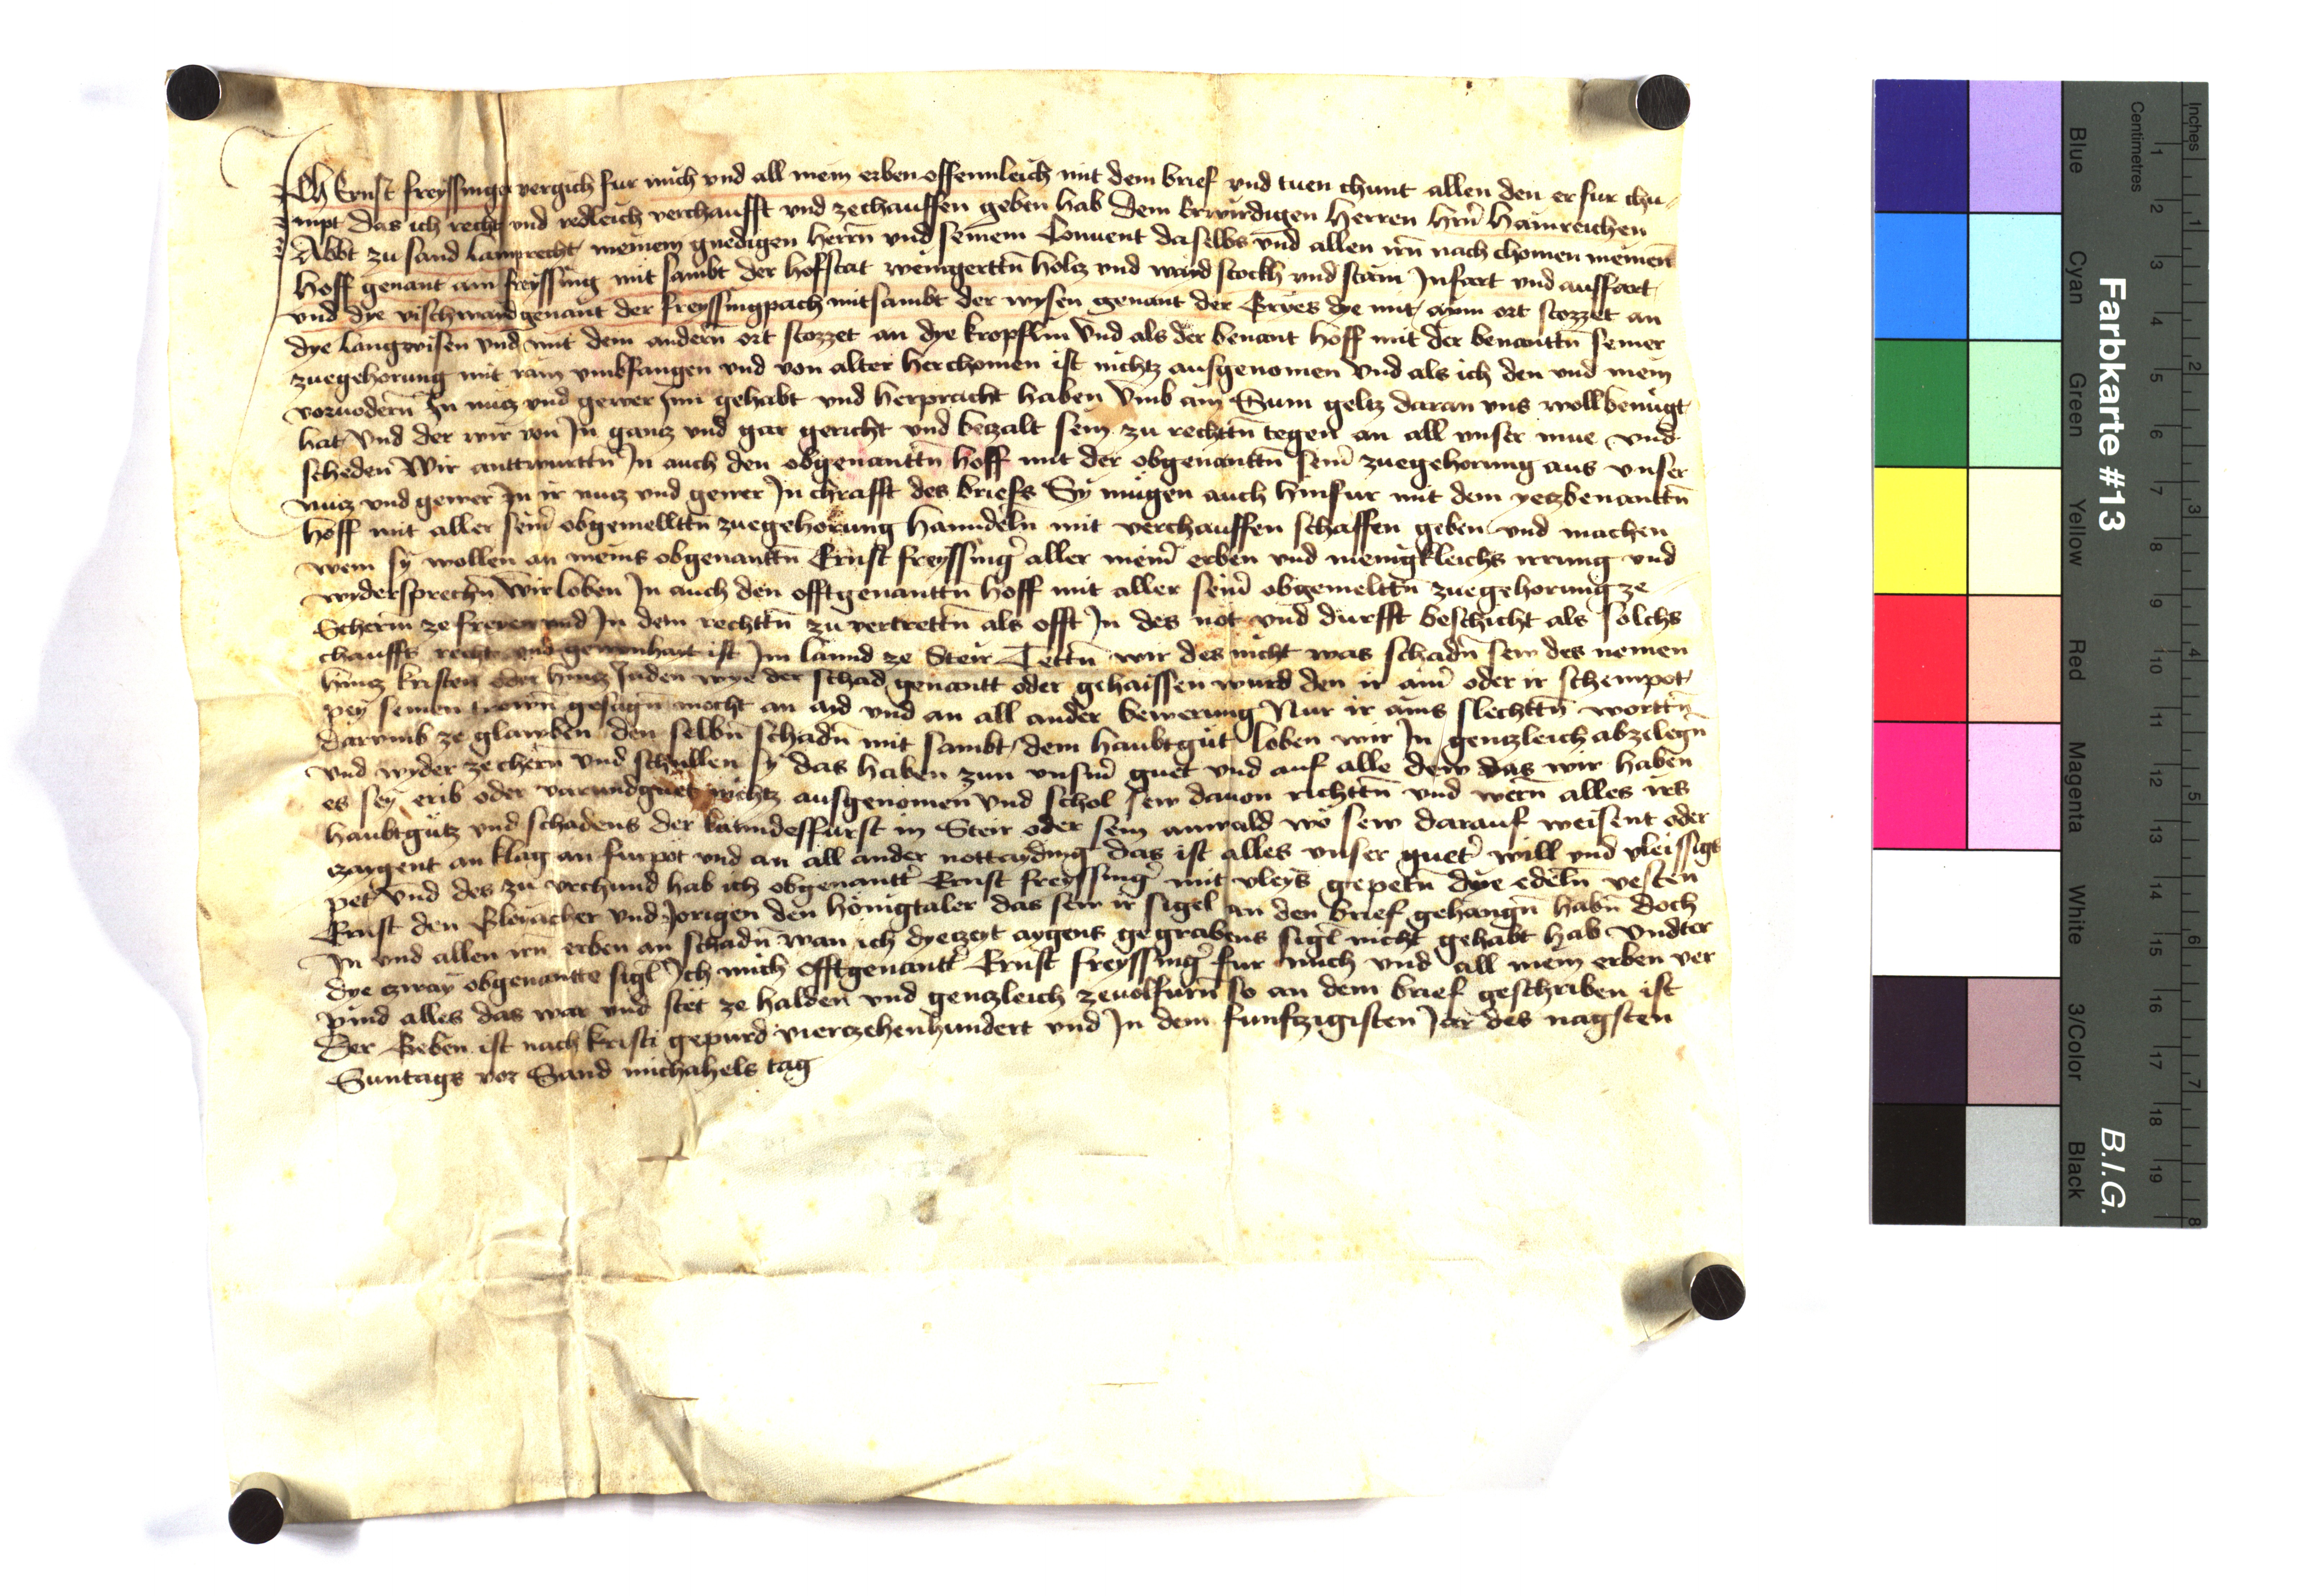 Ich Ernst freyssinger vergich fur mich vnd all mein erben offennleich mit dem brief vnd tuen chunt allen den er fur chu-
mpt das ich recht vnd redleich verchaufft vnd zechauffen geben hab dem Erwirdigen herren hrn̄ hainreichen
Abbt zu sand lamprecht meinem gnedigen herrn̄ vnd seinem Conuent daselbs vnd allen irn̄ nach chomen meinen
hoff genant am freyssing mit sambt der hofstat weingerttn̄ holcz vnd waid stockh vnd stain Infart vnd auffart
vnd dye vischwaid genant der freyssingpach mitsambt der wysen genant der Eryes dye mit aym ort stozzet an
dye langwisen vnd mit dem andern̄ ort stozzet an dye kropflin vnd als der benant hoff mit der benanttn̄ seiner
zuegehorung mit rain vmbfangen vnd von alter herchomen ist nichtz ausgenomen vnd als ich den vnd mein
voruodern̄ In nucz vnd gewer Inn gehabt vnd herpracht haben vmb ain Sum geltz daran vns woll benugt
hat vnd der wir von In gancz vnd gar gericht vnd beczalt sein zu rechttn̄ tegen an all vnser mue vnd
scheden Wir anttwurttn̄ In auch den obgenanttn̄ hoff mit der obgenanttn̄ sein̄ zuegehorung aus vnser
nucz vnd gewer In ir nucz vnd gewer In chrafft des briefs Sy mugen auch hinfur mit dem yeczbenanttn̄
hoff mit aller sein̄ obgemellttn̄ zuegehorung hanndeln̄ mit verchauffen schaffen geben vnd machen
wem sy wollen an meins obgenanttn̄ Ernst freyssinger aller mein̄ erben vnd menigkleichs irrung vnd
widersprechn̄ Wir loben In auch den offtgenanttn̄ hoff mit aller sein̄ obgemelttn̄ zuegehorung ze
Scherm ze freyen vnd In dem rechttn̄ zu vertrettn̄ als offt In des not vnd durfft beschicht als solchs
chauffs recht vnd gewonhait ist Im lannd ze Steir Tettn̄ wir des nicht was schadn̄ sew des nemen
hincz kristen oder hincz Juden wye der schad genantt oder gehaissen wurd den ir ain̄ oder ir schempot
pey seinen trewn̄ gesagn̄ mocht an aid vnd an all ander bewerung Nur ir ains slechttn̄ worttn̄
darumb ze glawben den selbn̄ schadn̄ mit sambt dem haubtgut loben wir In genczleich abzelegn̄
vnd wyder zechern̄ vnd schullen sy das haben zun vnsm̄ guet vnd auf alle dew das wir haben
es sey erib oder varundguet nichtz ausgenomen vnd schol sew dauon richttn̄ vnd wern̄ alles irs
haubtgutz vnd schadens der lanndesfurst in Steir oder sein anwald wo sew darauf weisent oder
czaygent an klag an furpot vnd an all ander nottayding das ist alles vnser guet̄ will vnd vleissigs
pet vnd des zu vrchund hab ich obgenantt̄ Ernst freyssinger mit vleys gepetn̄ dye edeln̄ vesten
Ernst den vnd Jorigen den honigtaler das sew ir sigel an den brief gehangn̄ habn̄ doch
In vnd allen irn̄ erben an schadn̄ wan ich dyeczeyt aygens gegrabens sigl̄ nicht gehabt hab vndter
dye czway obgenantte sigl̄ Ich mich offtgenantt̄ Ernst freyssinger fur mich vnd all mein erben ver
pind alles das war vnd stet ze halden vnd genczleich zeuolfurn̄ so an dem brief geschriben ist
Der Geben ist nach kristi gepurd vierczehenhundert vnd In dem funfczigisten Jar des nagsten
Suntags vor Sand michahels tag
Farbkarte #13
B.I.G.
Centimetres
Inches
Blue
Cyan
Green
Yellow
Red
Magenta
White
3/Color
Black
1
2
3
4
5
6
7
8
9
10
11
12
13
14
15
16
17
18
19
1
2
3
4
5
6
7
8